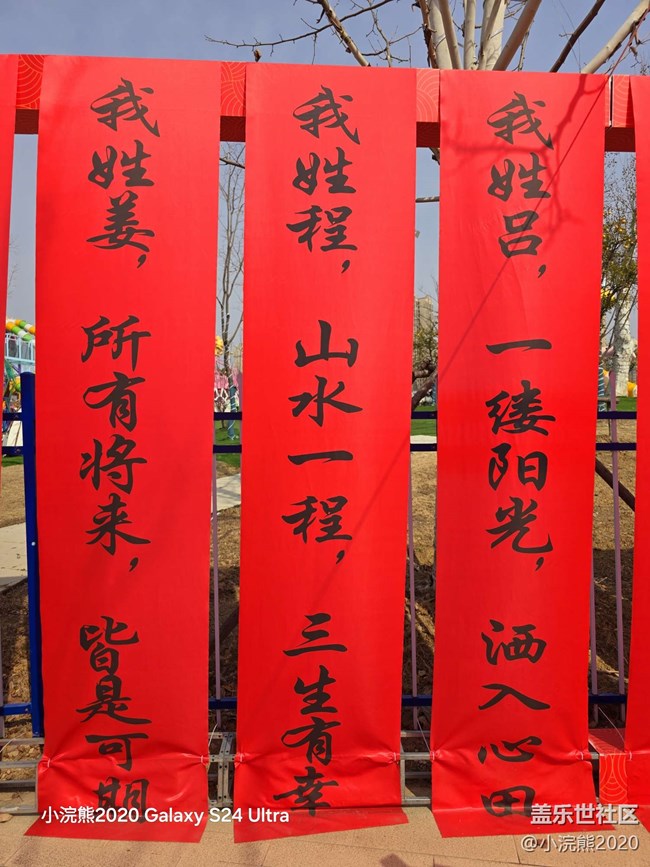 我姓姜，所有将来，皆是可期
我姓程，山水一程，三生有幸
我姓吕，一缕阳光，洒入心田
小浣熊2020 Galaxy S24 Ultra
盖乐世社区
@小浣熊2020